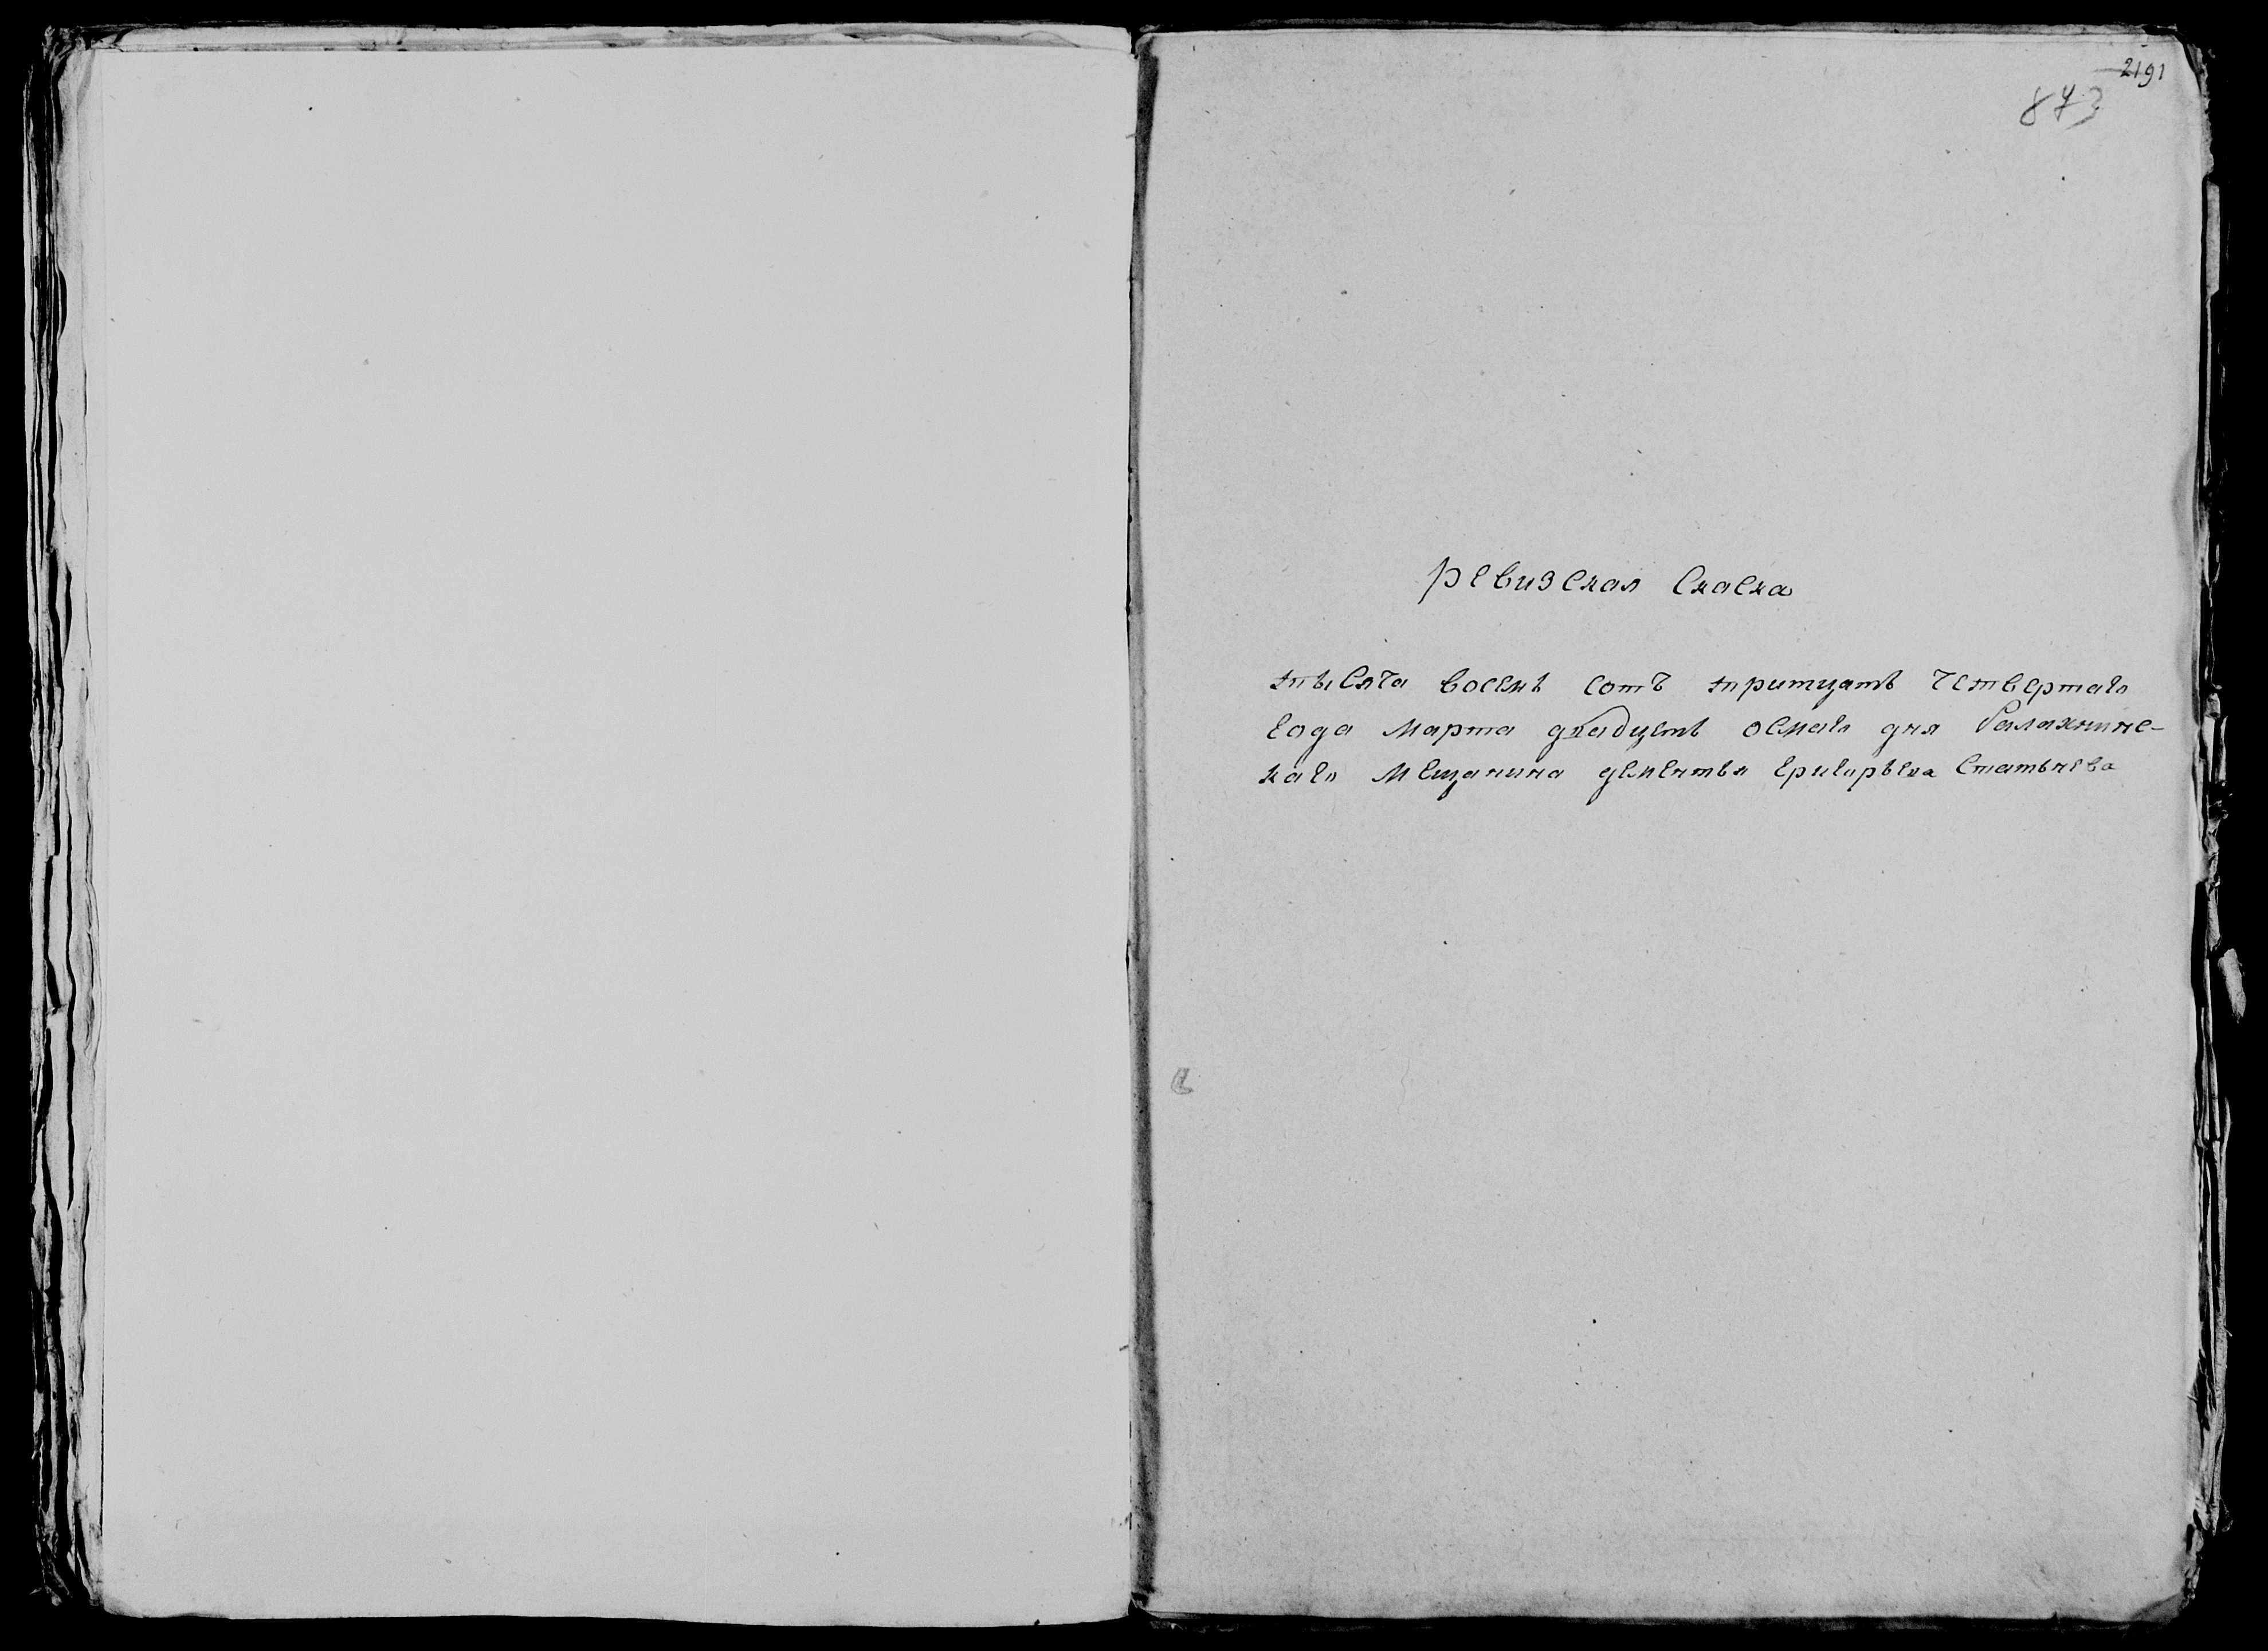 2191
873
Ревизская Скаска
тысяча восемь сотъ тритцать четвертаго
года марта двадцеть осмаго дня Балахнинс-
каго мещанина Дементья Григорьева Статьнева